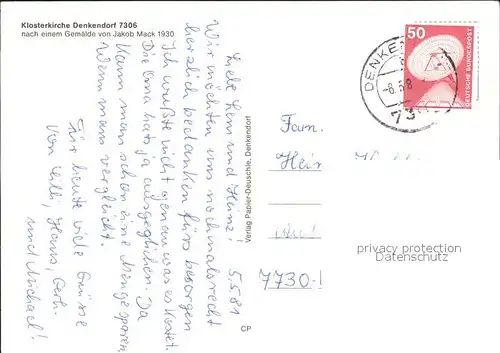 Klosterkirche Denkendorf 7306
nach einem Gemälde von Jakob Mack 1930
5.5.81
Liebe Leni und Heinz!
Wir möchten uns nochmals recht
herzlich bedanken fürs besorgen
Ich wußte nicht genau was es kostet.
Die Oma hats ja ausgeglichen. Ja
Kann man schon eine Menge sparen,
Wenn mans vergleicht.
Für heute viele Grüsse
von Hans,
und Michael!
Verlag Papier-Deuschle, Denkendorf
CP
50
DEUTSCHE BUNDESPOST
DENKE
-6.5.8
73
Fam.
Hein
7730-
privacy protection
Datenschutz